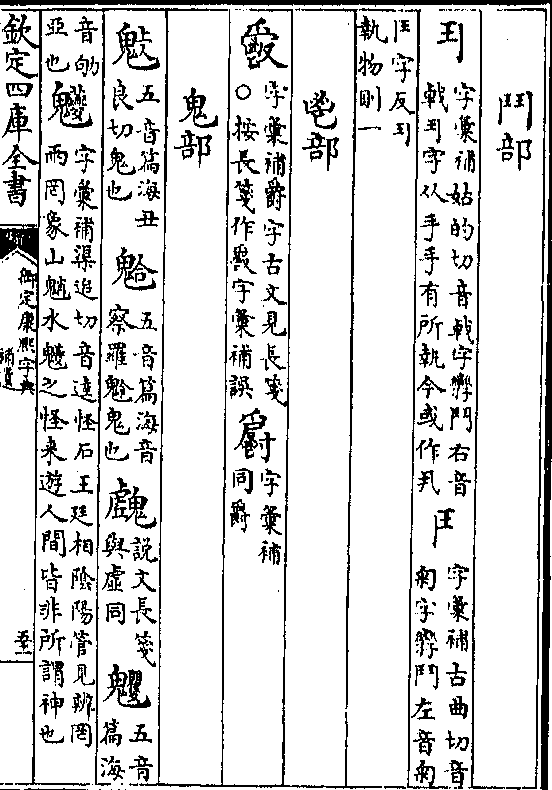 鬥部
字彙補姑的切音戟字鬥右音
戟字从手手有所執今或作丮
字彙補古曲切音
匊字鬥左音匊
字反
執物則一
鬯部
字彙補爵字古文見長箋
○按長箋作字彙補誤
字彙補
同爵
鬼部
五音篇海丑
良切鬼也
五音篇海音
察羅鬼也
說文長箋
與虛同
五音
篇海
音劬
亞也
字彙補渠追切音逵怪石王廷相陰陽管見辨罔
兩罔象山魈水之怪来遊人間皆非所謂神也
欽定四庫全書
御定康熙字典
補遺